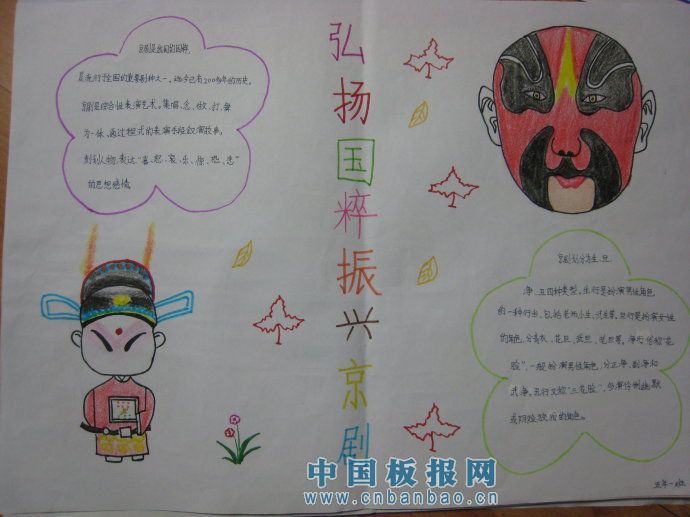 弘扬国粹振兴京剧
京剧是我们的国粹,
是流行全国的重要剧种之一,迄今已有200多年的历史。
京剧是综合性表演艺术。集唱、念、做、打、舞
为一体、通过程式的表演手段叙演故事,
刻划人物,表达"喜、怒、哀、乐、惊、恐、悲"
的思想感情。
京剧划分为生、旦、
净、丑四种类型。生行是扮演男性角色
的一种行当、包括老地小生、武生等。旦行是扮演女性
的角色、分青衣、花旦、武旦、老旦等。净行俗称"花
脸",一般扮演男性角色,分正净、副净和
武净。丑行又称"三花脸",多演伶俐幽默
或阴险狡猾的角色。
五年一班
中国板报网
www.cnbanbao.cn